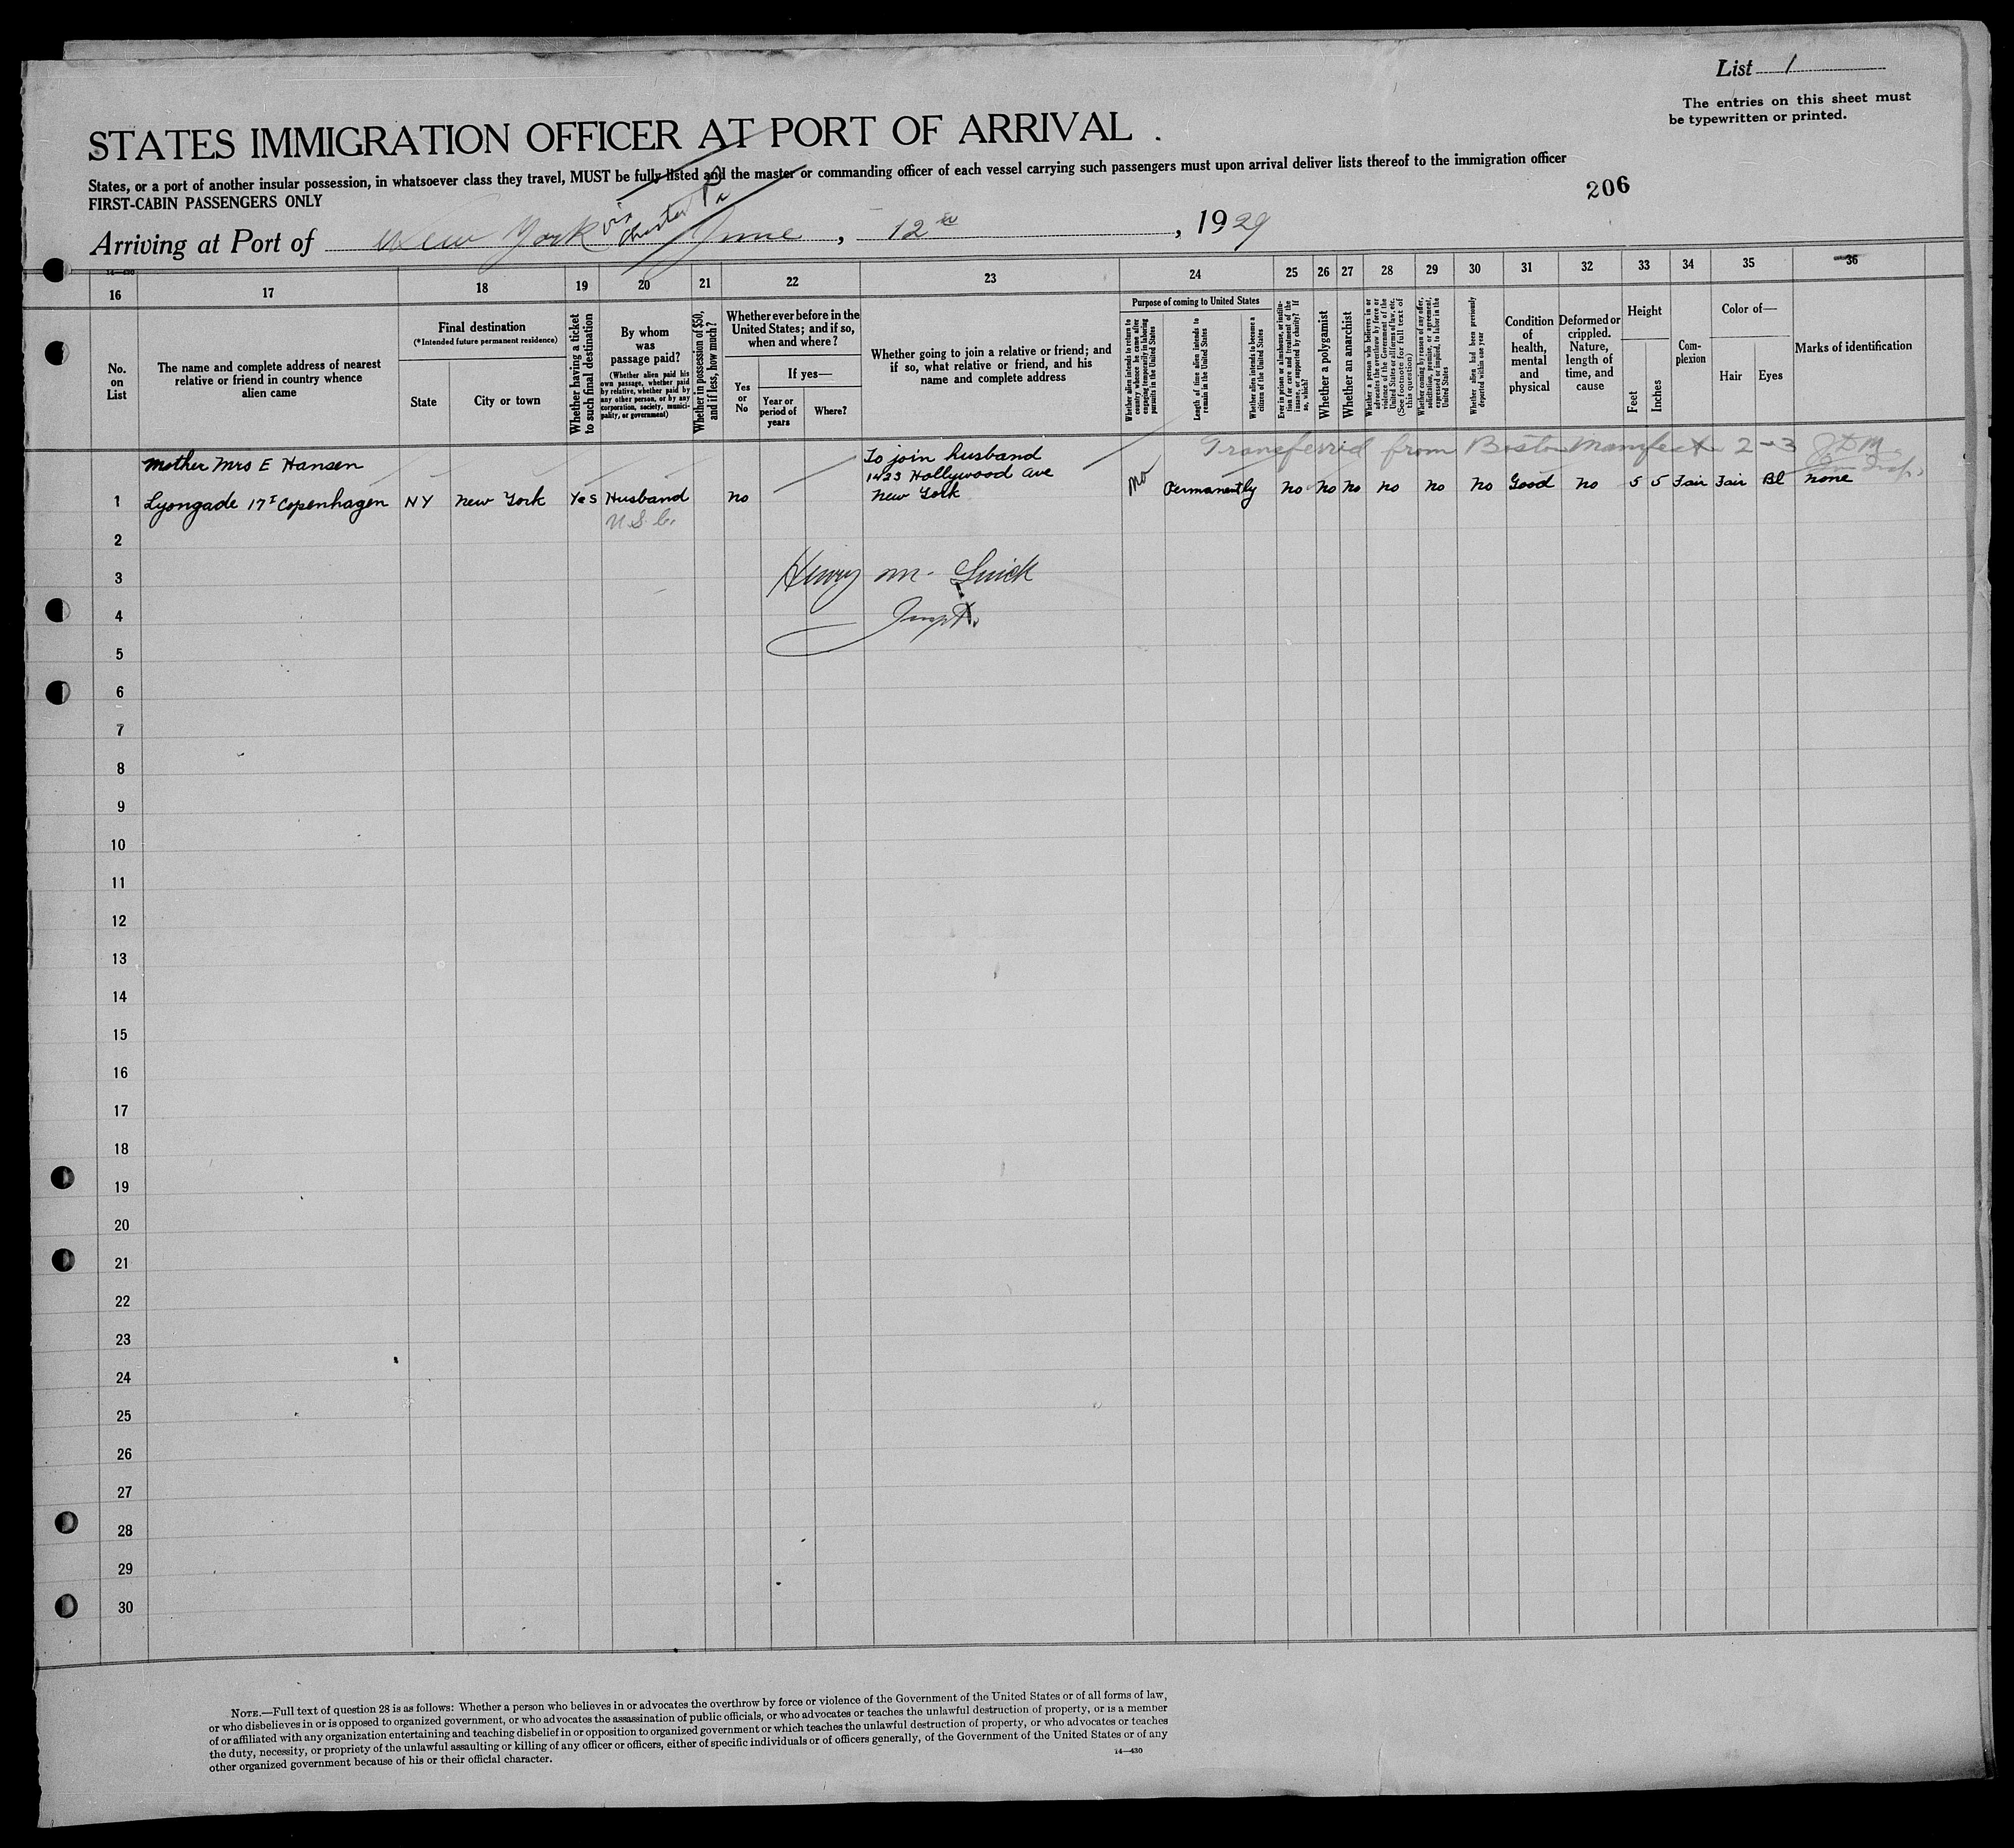 List 1
The entries on this sheet must
be typewritten or printed.
STATES IMMIGRATION OFFICER AT PORT OF ARRIVAL
States, or a port of another insular possession, in whatsoever class they travel, MUST be fully listed and the master or commanding officer of each vessel carrying such passengers must upon arrival deliver lists thereof to the immigration officer
FIRST-CABIN PASSENGERS ONLY
206
via Chester Pa
Arriving at Port of New York June, 12th, 1929
14—430
16 17 18 19 20 21 22 23 24 25 26 27 28 29 30 31 32 33 34 35 36
No.
on
List
The name and complete address of nearest
relative or friend in country whence
alien came
Final destination
(*Intended future permanent residence)
State
City or town
Whether having a ticket
to such final destination
By whom
was
passage paid?
(Whether alien paid his
own passage, whether paid
by relative, whether paid by
any other person, or by any
corporation, society, munici-
pality, or government)
Whether in possession of $50,
and if less, how much?
Whether ever before in the
United States; and if so,
when and where?
Yes
or
No
If yes—
Year or
period of
years
Where?
Whether going to join a relative or friend; and
if so, what relative or friend, and his
name and complete address
Purpose of coming to United States
Whether alien intends to return to
country whence he came after
engaging temporarily in laboring
pursuits in the United States
Length of time alien intends to
remain in the United States
Whether alien intends to become a
citizen of the United States
Ever in prison or almshouse, or institu-
tion for care and treatment of the
insane, or supported by charity? If
so, which?
Whether a polygamist
Whether an anarchist
Whether a person who believes in or
advocates the overthrow by force or
violence of the Government of the
United States or all forms of law, etc.
(See footnote for full text of
this question)
Whether coming by reason of any offer,
solicitation, promise, or agreement,
expressed or implied, to labor in the
United States
Whether alien had been previously
deported within one year
Condition
of
health,
mental
and
physical
Deformed or
crippled.
Nature,
length of
time, and
cause
Height
Feet
Inches
Com-
plexion
Color of—
Hair
Eyes
Marks of identification
Transferred from Boston Manifest 2-3
mother Mrs E Hansen
To join husband
1423 Hollywood Ave
New York
1 Lyongade 17 I Copenhagen NY New York Yes Husband no no Permanently no no no no no no Good no 5 5 Fair Fair Bl none
U.S.C.
2
3
Henry M.
4
Inspt.
5
6
7
8
9
10
11
12
13
14
15
16
17
18
19
20
21
22
23
24
25
26
27
28
29
30
NOTE.—Full text of question 28 is as follows: Whether a person who believes in or advocates the overthrow by force or violence of the Government of the United States or of all forms of law,
or who disbelieves in or is opposed to organized government, or who advocates the assassination of public officials, or who advocates or teaches the unlawful destruction of property, or is a member
of or affiliated with any organization entertaining and teaching disbelief in or opposition to organized government or which teaches the unlawful destruction of property, or who advocates or teaches
the duty, necessity, or propriety of the unlawful assaulting or killing of any officer or officers, either of specific individuals or of officers generally, of the Government of the United States or of any
other organized government because of his or their official character.
14—430